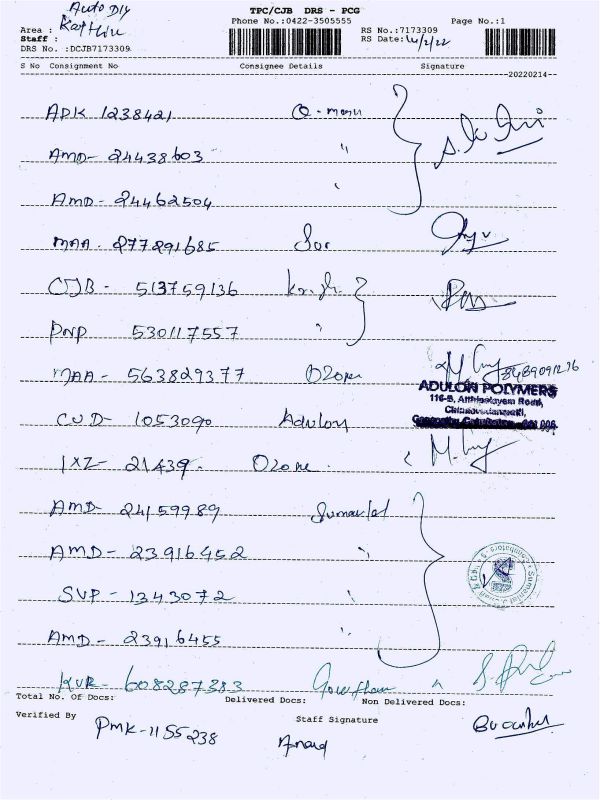 Auto DIY
TPC/CJB DRS - PCG
Area : Karthik
Phone No.:0422-3505555
RS No.:7173309
Page No.:1
Staff :
RS Date: 14/2/22
DRS No. :DCJB7173309
S No Consignment No Consignee Details Signature
20220214
ADK 1238421
AMD- 24438603 "
AMD- 24462504 "
MAA. 277291685
CJB- 513759136
PNP 530117557 "
MAA- 563829377 Ozone
ADULON POLYMERS
116-B, Athipalayam Road,
Chinnavedampatti,
CUD- 1053090 Adulon
IXZ- 21439. Ozone.
AMD- 24159989 Sumangal
AMD- 23916452 "
SVP- 1343072 "
AMD- 23916455 "
KUR- 608287383 Gowtham
Total No. Of Docs: Delivered Docs: Non Delivered Docs:
Verified By PMK-1155238 Staff Signature
Anand